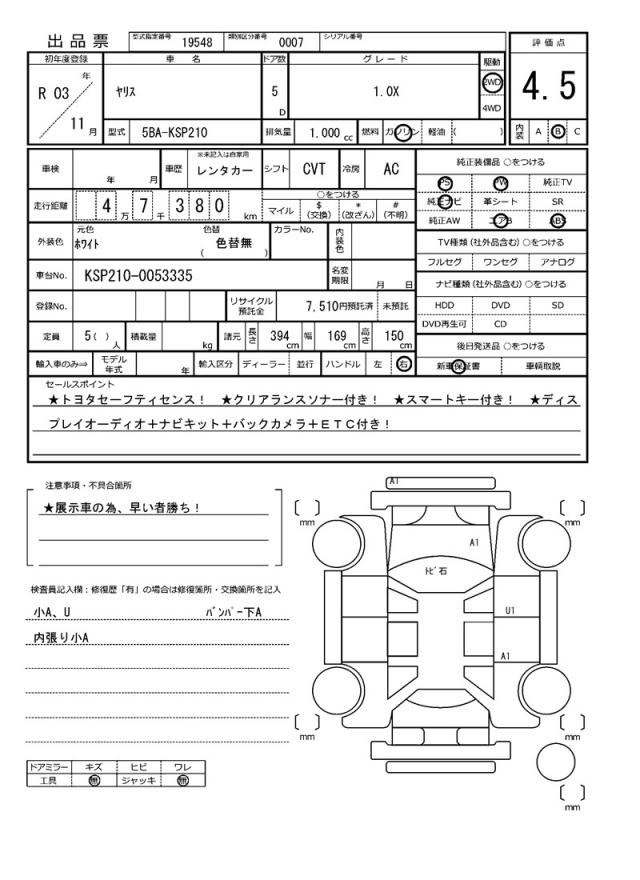 出品票
型式指定番号 19548 類別区分番号 0007 シリアル番号
評価点
4.5
内装 A B C
初年度登録 車名 ドア数 グレード 駆動
R 03 年 11 月
ヤリス
5 D
1.0X
2WD
4WD
型式 5BA-KSP210 排気量 1.000 cc 燃料 ガソリン 軽油 ( )
車検 年 月 車歴 ※未記入は自家用 レンタカー シフト CVT 冷房 AC
純正装備品 ○をつける
PS PW 純正TV
純正ナビ 革シート SR
純正AW エアB ABS
走行距離 4万 7千 3 8 0 km
○をつける
マイル $ (交換) * (改ざん) # (不明)
TV種類 (社外品含む) ○をつける
フルセグ ワンセグ アナログ
外装色 元色 ホワイト 色替 ( 色替無 ) カラーNo. 内装色
ナビ種類 (社外品含む) ○をつける
HDD DVD SD
DVD再生可 CD
車台No. KSP210-0053335 名変期限 月 日
登録No. リサイクル預託金 7,510円預託済 未預託
定員 5( )人 積載量 kg 諸元 長さ 394 cm 幅 169 cm 高さ 150 cm
後日発送品 ○をつける
新車保証書 車輌取説
輸入車のみ⇒ モデル年式 年 輸入区分 ディーラー 並行 ハンドル 左 右
セールスポイント
★トヨタセーフティセンス! ★クリアランスソナー付き! ★スマートキー付き! ★ディス
プレイオーディオ+ナビキット+バックカメラ+ETC付き!
注意事項・不具合箇所
★展示車の為、早い者勝ち!
検査員記入欄:修復歴「有」の場合は修復箇所・交換箇所を記入
小A、U ﾊﾞﾝﾊﾟｰ下A
内張り小A
ドアミラー キズ ヒビ ワレ
工具 無 ジャッキ 無
A1
[ ] mm
[ ] mm
A1
ﾄﾋﾞ石
U1
A1
[ ] mm
[ ] mm
[ ] mm